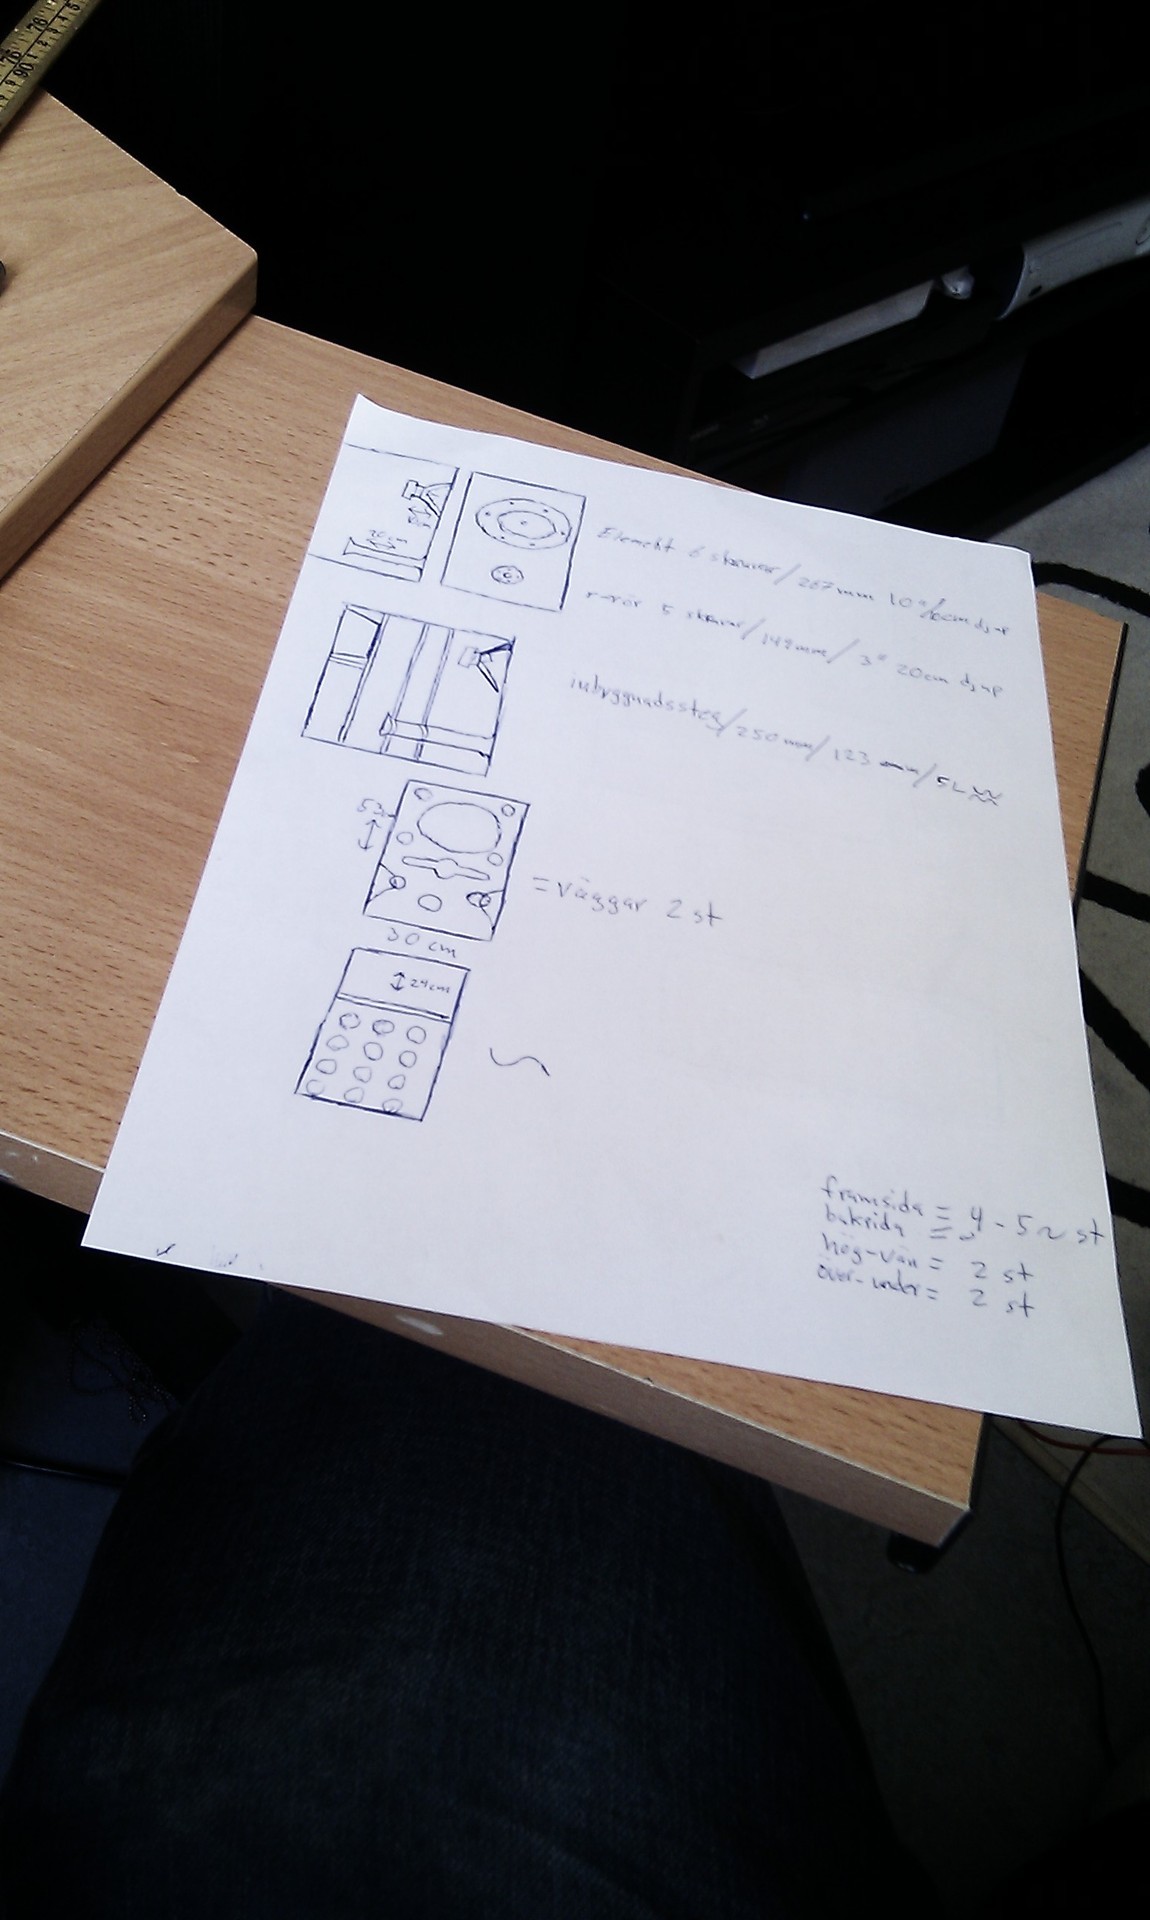 Element 6 skruvar / 267mm 10" / 10cm djup
r-rör 5 skruvar / 149mm / 3" 20cm djup
inbyggnadssteg / 250 mm / 123 mm / 5L
20cm
= väggar 2 st
30 cm
↕ 24cm
framsida = 4 - 5 ~ st
baksida =
hög-vän = 2 st
över-under = 2 st
76
78
90